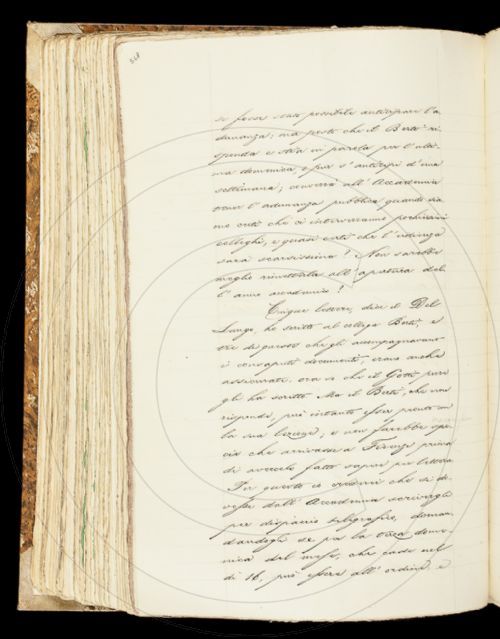 568
se fosse stato possibile anticipare l'a
dunanza; ma posto che il Berti ri
sponda e stia in parola per l'ulti
ma domenica, o pur s'anticipi d'una
settimana; converrà all'Accademia
tener l'adunanza pubblica quando sia
mo certi che ci interverranno pochissimi
colleghi, e quasi certi che l'udienza
sarà scarsissima? Non sarebbe
meglio rimetterla all'apertura del
l'anno accademico?
Cinque lettere, dice il Del
Lungo, ho scritto al collega Berti, e
tre di queste che gli accompagnavano
i consaputi documenti, erano anche
assicurate. ora so che il Gotti pure
gli ha scritto. Ma il Berti, che non
risponde, può intanto esser pronto con
la sua lezione; e non sarebbe spe
cie che arrivasse a Firenze prima
di avercelo fatto sapere per lettera
Per questo io crederei che si do
vesse dall'Accademia scrivergli
per dispaccio telegrafico, doman
dandogli se per la terza dome
nica del mese, che cade nel
dì 16, può essere all'ordine, e